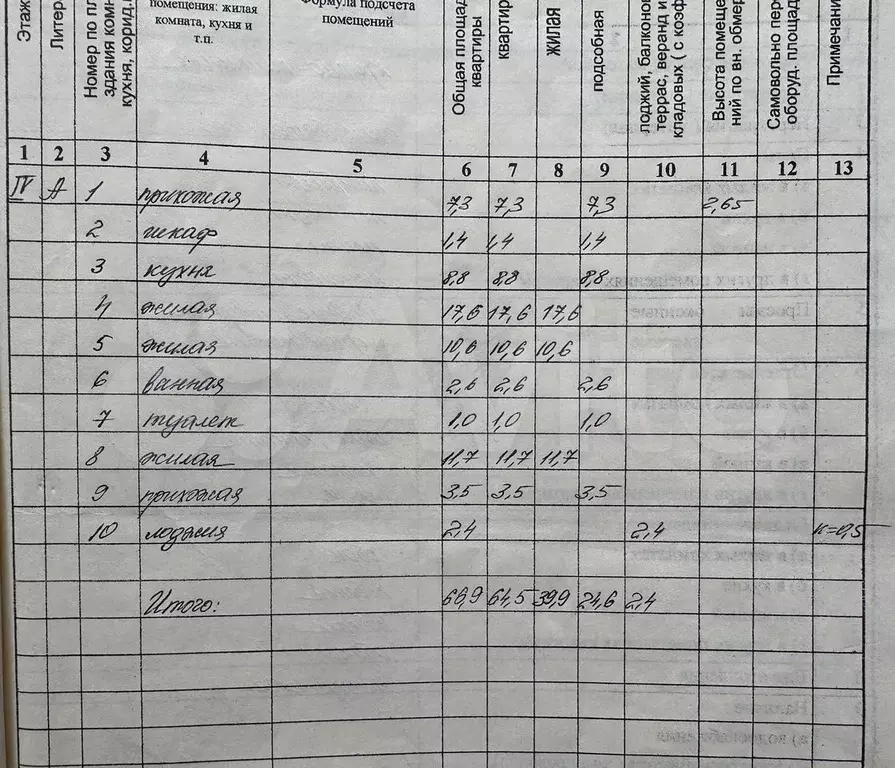 Этаж
Литер
Номер по пл
здания комн
кухня, корид.
помещения: жилая
комната, кухня и
т.п.
Формула подсчета
помещений
Общая площад
квартиры
квартир
жилая
подсобная
лоджий, балконов
террас, веранд и
кладовых ( с коэф
Высота помеще
ний по вн. обмер
Самовольно пер
оборуд. площад
Примечани
1 2 3 4 5 6 7 8 9 10 11 12 13
IV А 1 прихожая 7,3 7,3 7,3 2,65
2 шкаф 1,4 1,4 1,4
3 кухня 8,8 8,8 8,8
4 жилая 17,6 17,6 17,6
5 жилая 10,6 10,6 10,6
6 ванная 2,6 2,6 2,6
7 туалет 1,0 1,0 1,0
8 жилая 11,7 11,7 11,7
9 прихожая 3,5 3,5 3,5
10 лоджия 2,4 2,4 к=0,5
Итого: 66,9 64,5 39,9 24,6 2,4